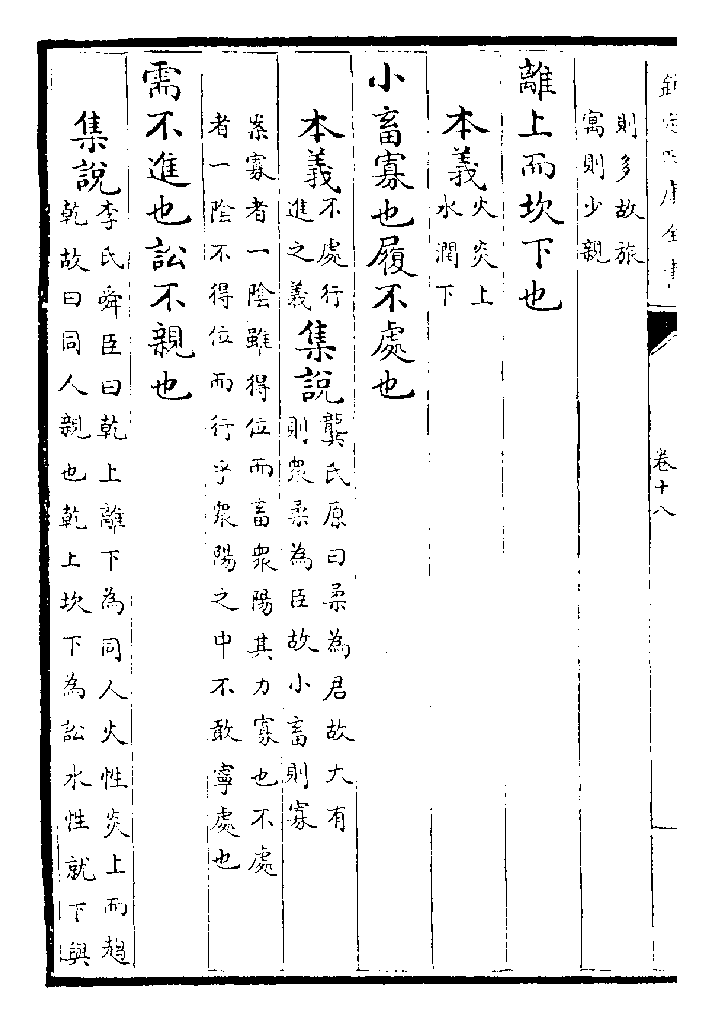 欽定四庫全書
卷十八
則多故旅
寓則少親
離上而坎下也
本義火炎上
水潤下
小畜寡也履不處也
本義不處行
進之義集說龔氏原曰柔為君故大有
則衆柔為臣故小畜則寡
案寡者一陰雖得位而畜衆陽其力寡也不處
者一陰不得位而行乎衆陽之中不敢寧處也
需不進也訟不親也
集說李氏舜臣曰乾上離下為同人火性炎上而趨
乾故曰同人親也乾上坎下為訟水性就下與